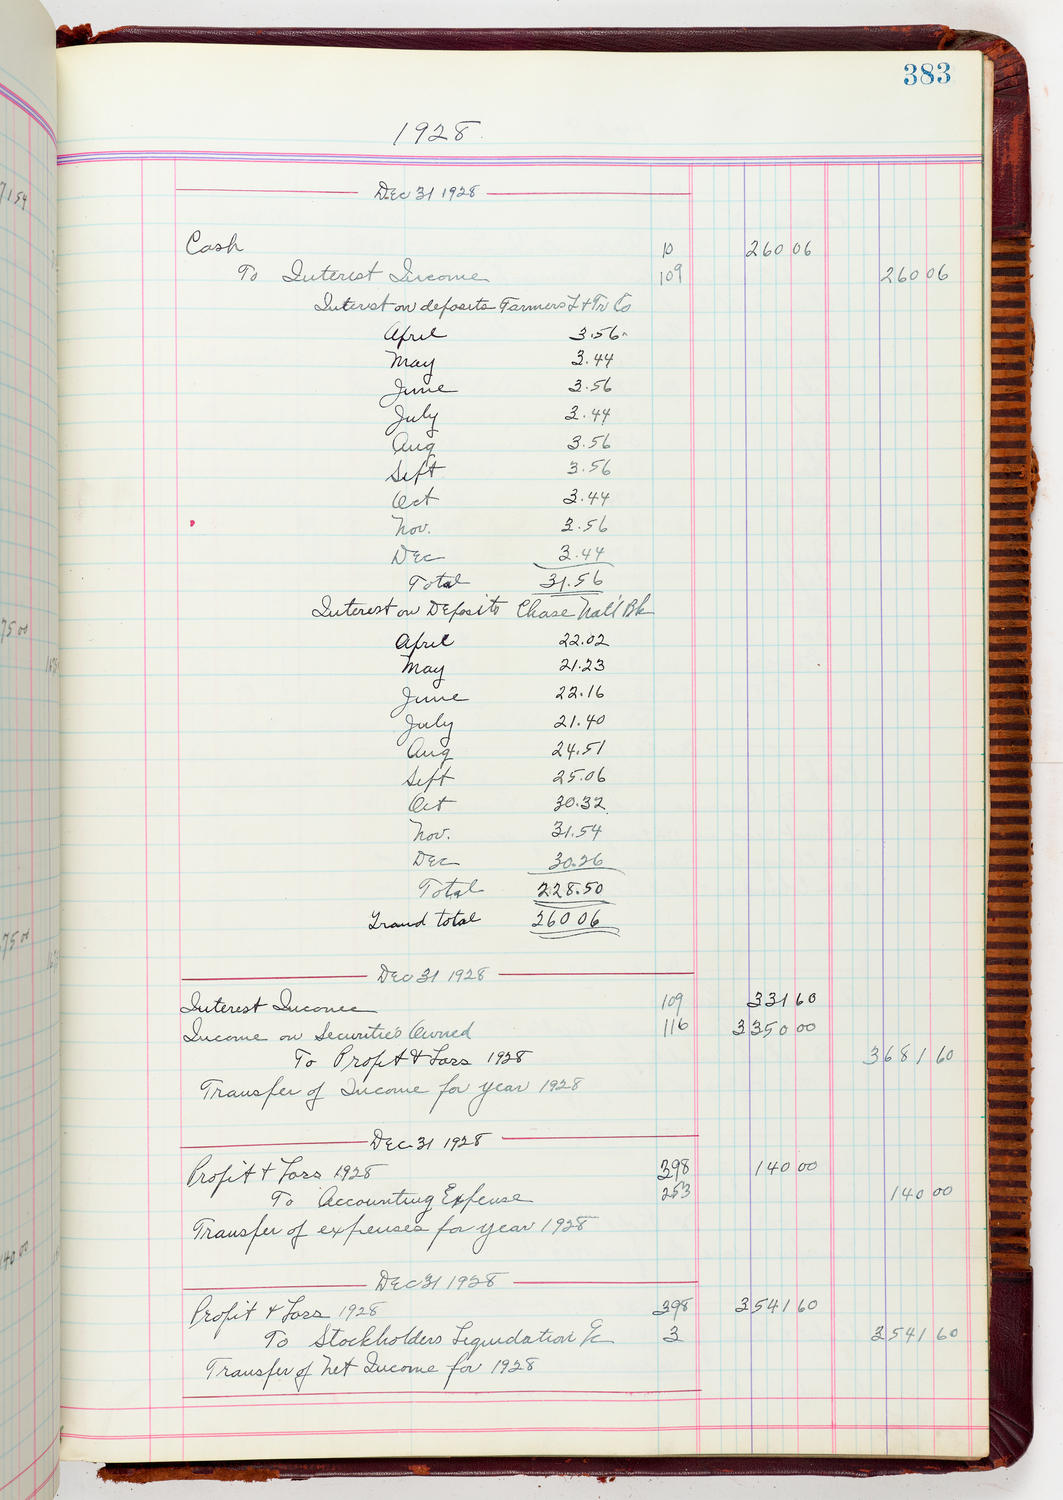 383
1928.
Dec 31 1928
Cash 10 260 06
To Interest Income 109 260 06
Interest on deposits Farmers L + Tr Co
April 3.56
May 3.44
June 3.56
July 3.44
Aug 3.56
Sept 3.56
Oct 3.44
Nov. 3.56
Dec 3.44
Total 31.56
Interest on Deposits Chase Nat'l Bk
April 22.02
May 21.23
June 22.16
July 21.40
Aug 24.51
Sept 25.06
Oct 30.32
Nov. 31.54
Dec 30.26
Total 228.50
Grand total 260 06
Dec 31 1928
Interest Income 109 331 60
Income on Securities Owned 116 3350 00
To Profit & Loss 1928 3681 60
Transfer of Income for year 1928
Dec 31 1928
Profit + Loss 1928 398 140 00
To Accounting Expense 253 140 00
Transfer of expenses for year 1928
Dec 31 1928
Profit + Loss 1928 398 3541 60
To Stockholders Liquidation a/c 3 3541 60
Transfer of Net Income for 1928